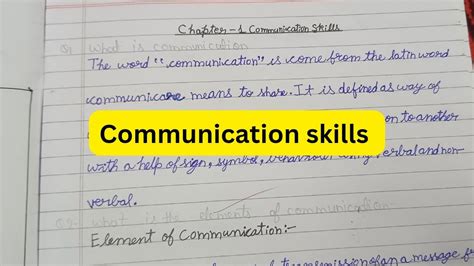 Chapter-1 Communication Skills
Q1 What is communication
The word "communication" is come from the latin word
communicare means to share. It is defined as way of
Communication skills
on to another
with a help of sign, symbol, behaviour using verbal and non-
verbal.
Q2 What is the elements of communication
Element of Communication:-
transmission of an a message fo